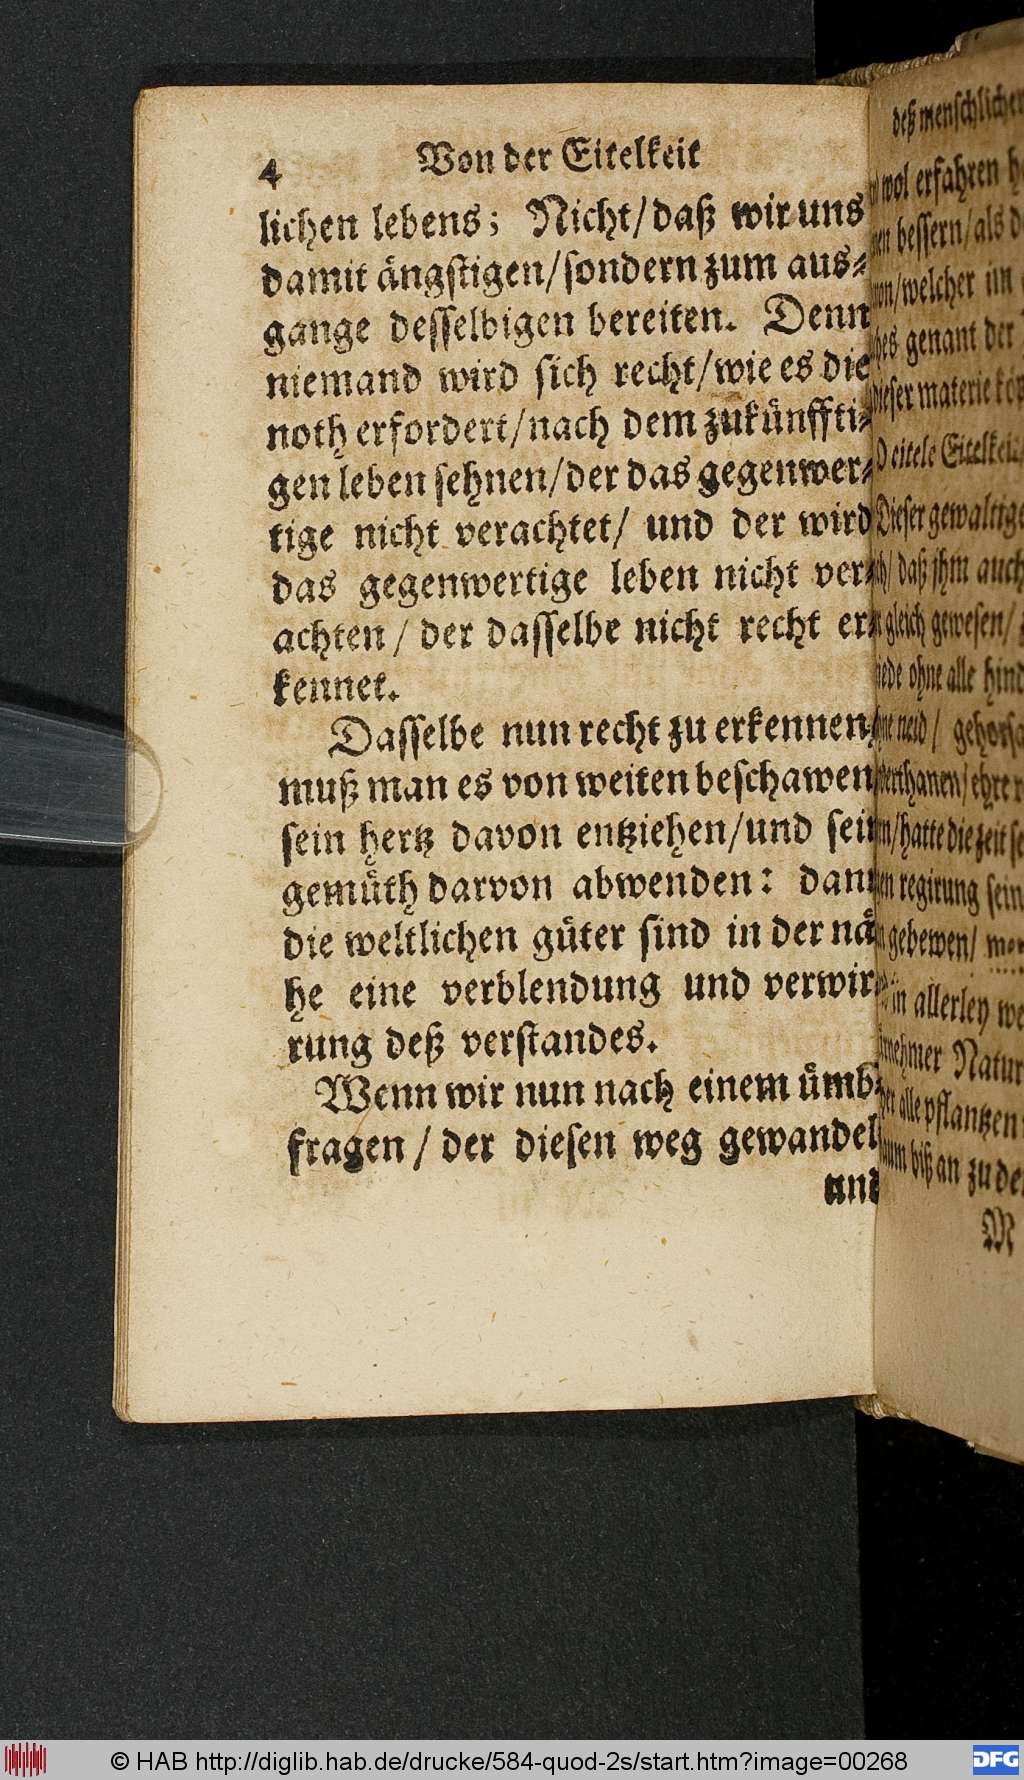 4 Von der Eitelkeit
lichen lebens; Nicht/daß wir uns
damit ängstigen/sondern zum aus⸗
gange desselbigen bereiten. Denn
niemand wird sich recht/wie es die
noth erfordert/nach dem zukünffti⸗
gen leben sehnen/der das gegenwer⸗
tige nicht verachtet/ und der wird
das gegenwertige leben nicht ver⸗
achten / der dasselbe nicht recht er⸗
kennet.
Dasselbe nun recht zu erkennen/
muß man es von weiten beschawen
sein hertz davon entziehen/und sein
gemüth darvon abwenden: dann
die weltlichen güter sind in der nä
he eine verblendung und verwir
rung deß verstandes.
Wenn wir nun nach einem ümb⸗
fragen / der diesen weg gewandel
und
deß menschlichen
wol erfahren
bessern/als
welcher im
genant der
dieser materie
eitele Eitelkeit
Dieser gewaltige
daß jhm auch
gleich gewesen/
ohne alle
neid /
hatte die zeit
regirung sein
gebewen/
in allerley
Natur
alle pflantzen
biß an zu
M
© HAB http://diglib.hab.de/drucke/584-quod-2s/start.htm?image=00268
DFG